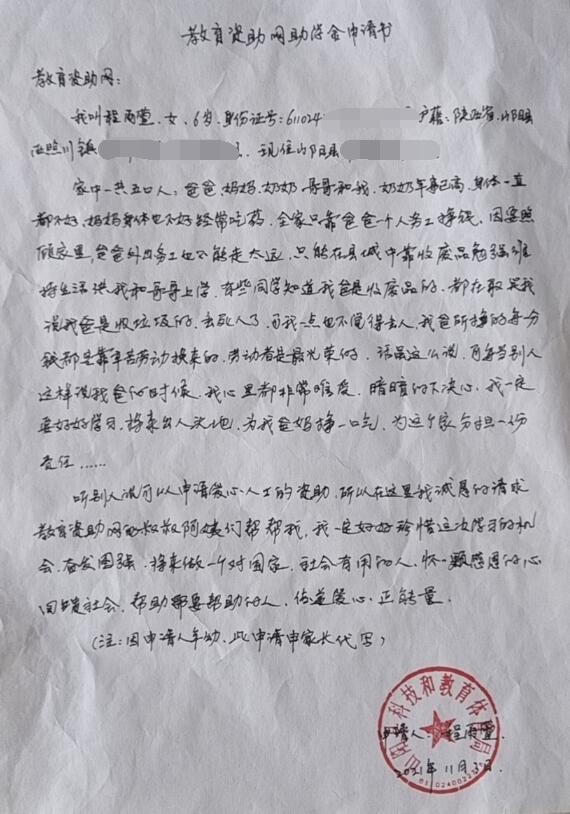 教育资助网助学金申请书
教育资助网：
我叫程雨萱、女、6岁、身份证号：611024 户籍：陕西省山阳县
西照川镇 现住山阳县
家中一共五口人，爸爸、妈妈、奶奶、哥哥和我，奶奶年龄已高，身体一直
都不好，妈妈身体也不好经常吃药，全家只靠爸爸一个人务工挣钱，因要照
顾家里，爸爸外出务工也不能走太远，只能在县城中靠收废品勉强维
持生活供我和哥哥上学，有些同学知道我爸是收废品的，都在取笑我
说我爸是收垃圾的，丢死人了，可我一点也不觉得丢人，我爸所挣的每分
钱都是靠辛苦劳动换来的，劳动者是最光荣的，话虽这么说，可每当别人
这样说我爸的时候，我心里都非常难受，暗暗的下决心，我一定
要好好学习，将来出人头地，为我爸妈挣一口气，为这个家分担一份
责任……
听别人说可以申请爱心人士的资助，所以在这里我诚恳的请求
教育资助网的叔叔阿姨们帮帮我，我一定好好珍惜这次学习的机
会，奋发图强，将来做一个对国家，社会有用的人，怀一颗感恩的心
回馈社会，帮助需要帮助的人，传递爱心，正能量。
（注：因申请人年幼，此申请由家长代写）
山阳县科技和教育体育局
申请人：程雨萱
2021年11月3日